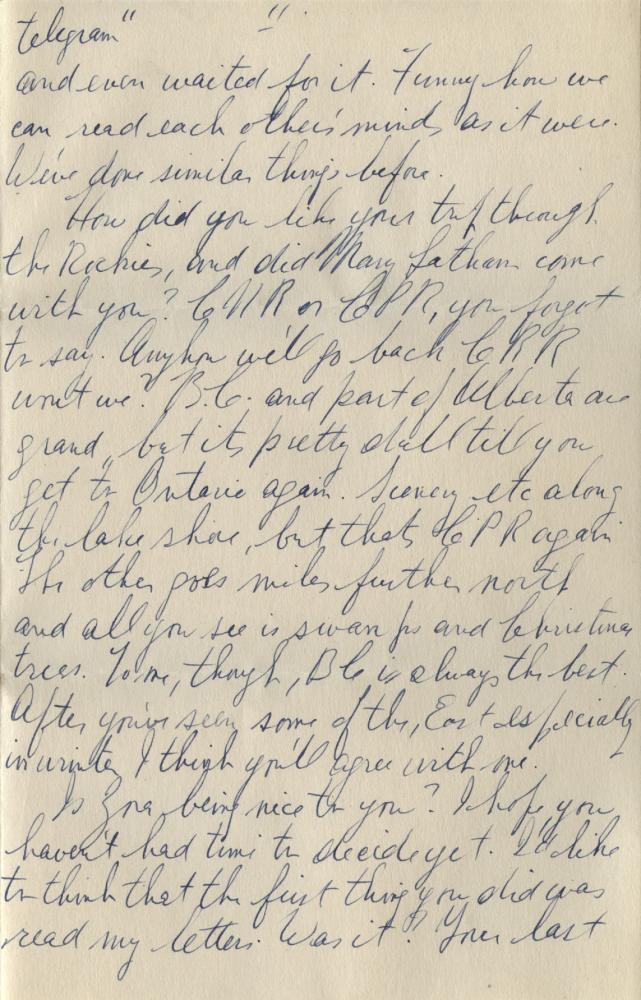 telegram" "
and even waited for it. Funny how we
can read each other's minds as it were.
We've done similar things before.
How did you like your trip through
the Rockies, and did Mary Latham come
with you? CNR or CPR, you forgot
to say. Anyhow we'll go back CPR
won't we? B.C. and part of Alberta are
grand, but its pretty dull till you
get to Ontario again. Scenery etc along
the lake shore, but thats CPR again
The other goes miles further north
and all you see is swamps and Christmas
trees. To me, though, BC is always the best.
After you've seen some of the, East especially
in winter I think you'll agree with me.
Is being nice to you? I hope you
haven't had time to decide yet. I'd like
to think that the first thing you did was
read my letters. Was it? Your last